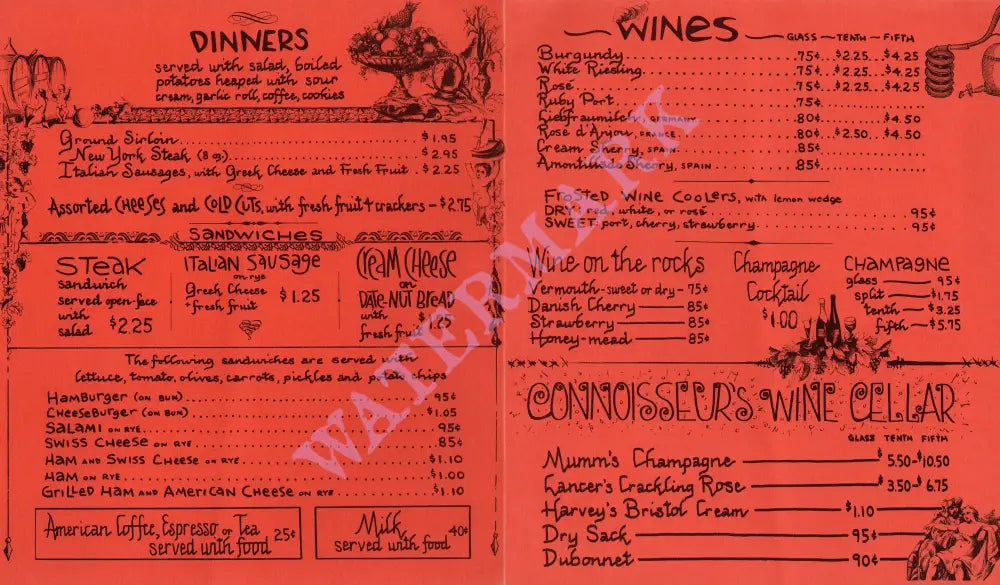 DINNERS
served with salad, boiled
potatoes heaped with sour
cream, garlic roll, coffee, cookies
Ground Sirloin $1.95
New York Steak (8 oz.) $2.95
Italian Sausages, with Greek Cheese and Fresh Fruit $2.25
Assorted CHEESES and COLD CUTS, with fresh fruit & crackers - $2.75
SANDWICHES
STEAK
sandwich
served open-face
with
salad $2.25
ITALIAN SAUSAGE
on rye
Greek Cheese
+ fresh fruit $1.25
CREAM CHEESE
on
DATE-NUT BREAD
with
fresh fruit $1.25
The following sandwiches are served with
lettuce, tomato, olives, carrots, pickles and potato chips
HAMBURGER (ON BUN) 95¢
CHEESEBURGER (ON BUN) $1.05
SALAMI ON RYE 95¢
SWISS CHEESE ON RYE 85¢
HAM AND SWISS CHEESE ON RYE $1.10
HAM ON RYE $1.00
GRILLED HAM AND AMERICAN CHEESE ON RYE $1.10
American Coffee, Espresso or Tea 25¢
served with food
Milk 40¢
served with food
WINES
GLASS ~ TENTH ~ FIFTH
Burgundy 75¢ $2.25 $4.25
White Riesling 75¢ $2.25 $4.25
Rosé 75¢ $2.25 $4.25
Ruby Port 75¢
Liebfraumilch, GERMANY 80¢ $4.50
Rosé d'Anjou, FRANCE 80¢ $2.50 $4.50
Cream Sherry, SPAIN 85¢
Amontillado Sherry, SPAIN 85¢
FROSTED WINE COOLERS, with lemon wedge
DRY: red, white, or rosé 95¢
SWEET: port, cherry, strawberry 95¢
Wine on the rocks
Vermouth - sweet or dry - 75¢
Danish Cherry 85¢
Strawberry 85¢
Honey-mead 85¢
Champagne
Cocktail
$1.00
CHAMPAGNE
glass 95¢
split $1.75
tenth $3.25
fifth $5.75
CONNOISSEUR'S WINE CELLAR
GLASS TENTH FIFTH
Mumm's Champagne $5.50 - $10.50
Lancer's Crackling Rose $3.50 - $6.75
Harvey's Bristol Cream $1.10
Dry Sack 95¢
Dubonnet 90¢
WATERMARK